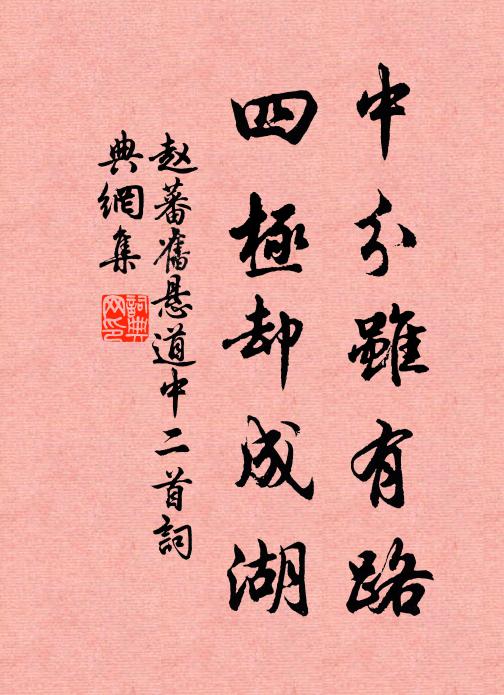 中分雖有路
四極却成湖
赵蕃舊悬道中二首詞
典網集
詞典
网印